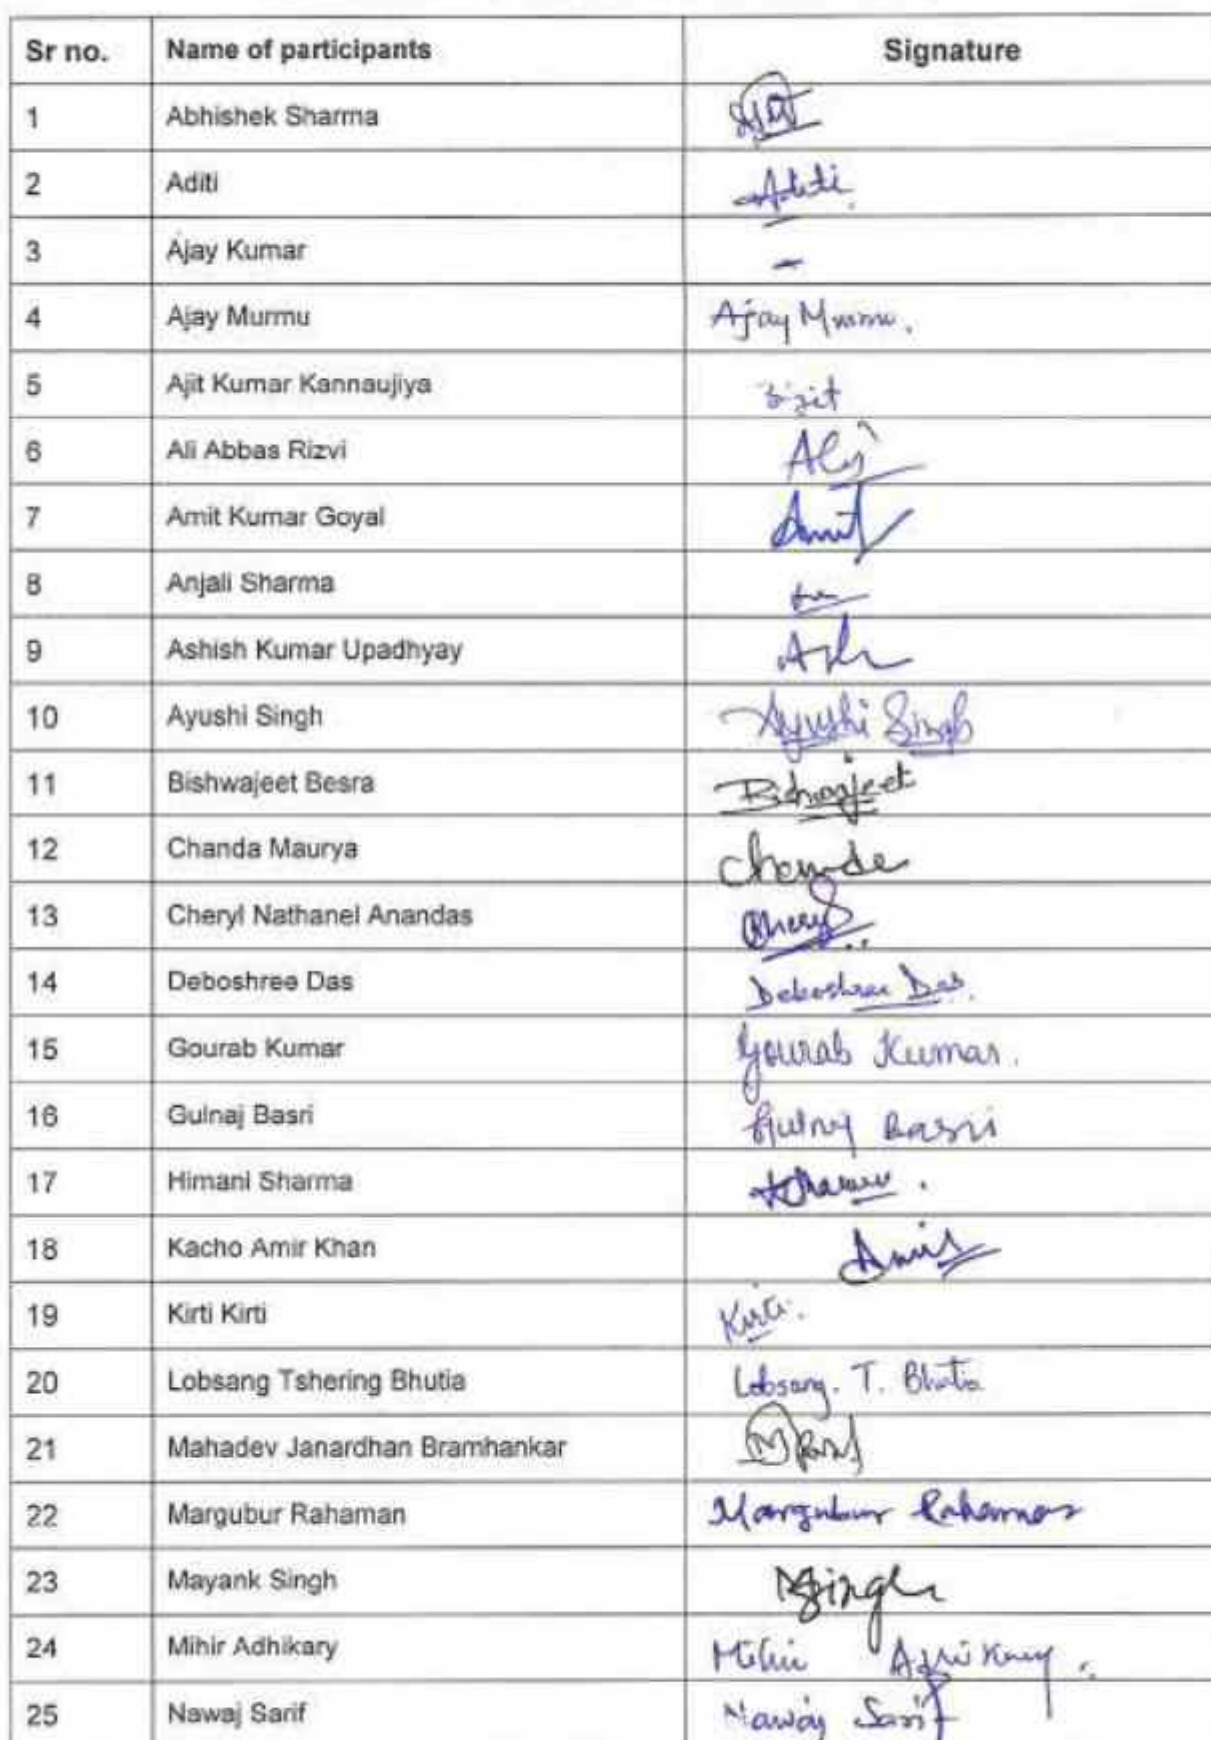 Sr no. Name of participants Signature
1 Abhishek Sharma
2 Aditi Aditi
3 Ajay Kumar -
4 Ajay Murmu Ajay Murmu.
5 Ajit Kumar Kannaujiya
6 Ali Abbas Rizvi Ali
7 Amit Kumar Goyal Amit
8 Anjali Sharma
9 Ashish Kumar Upadhyay
10 Ayushi Singh Ayushi Singh
11 Bishwajeet Besra
12 Chanda Maurya Chanda
13 Cheryl Nathanel Anandas Cheryl
14 Deboshree Das Deboshree Das.
15 Gourab Kumar Gourab Kumar.
16 Gulnaj Basri Gulnaj Basri
17 Himani Sharma
18 Kacho Amir Khan Amir
19 Kirti Kirti Kirti.
20 Lobsang Tshering Bhutia Lobsang. T. Bhutia
21 Mahadev Janardhan Bramhankar
22 Margubur Rahaman Margubur Rahaman
23 Mayank Singh MSingh
24 Mihir Adhikary Mihir Adhikary.
25 Nawaj Sarif Nawaj Sarif